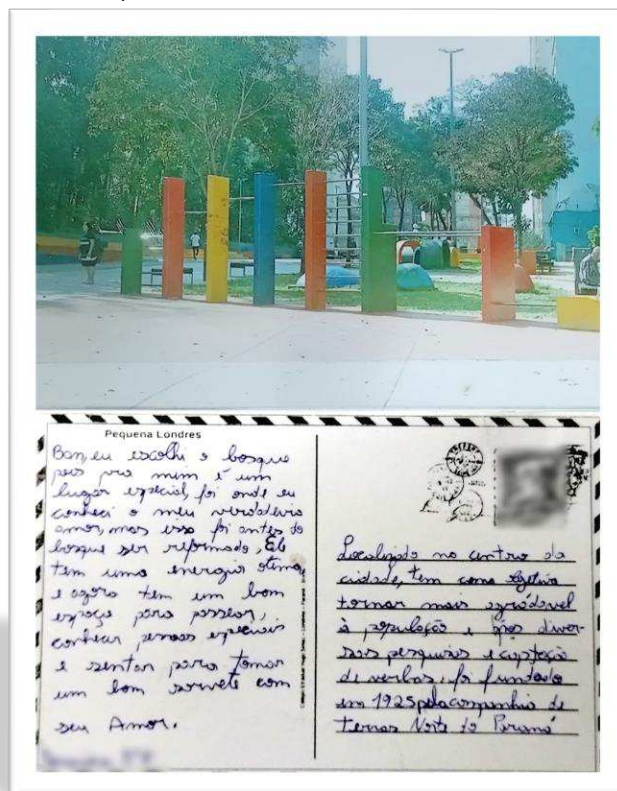 Pequena Londres
Bom, eu escolhi o bosque
pois pra mim é um
lugar especial, foi onde eu
conheci o meu verdadeiro
amor, mas isso foi antes do
bosque ser reformado, Ele
tem uma energia otima,
e agora tem um bom
espaço para passear,
conhecer pessoas especiais
e sentar para tomar
um bom sorvete com
seu Amor.
Localizado no centro da
cidade, tem como objetivo
tornar mais agradável
à população e após diver-
sas pesquisas e captação
de verbas, foi fundado
em 1925 pela companhia de
terras Norte do Paraná